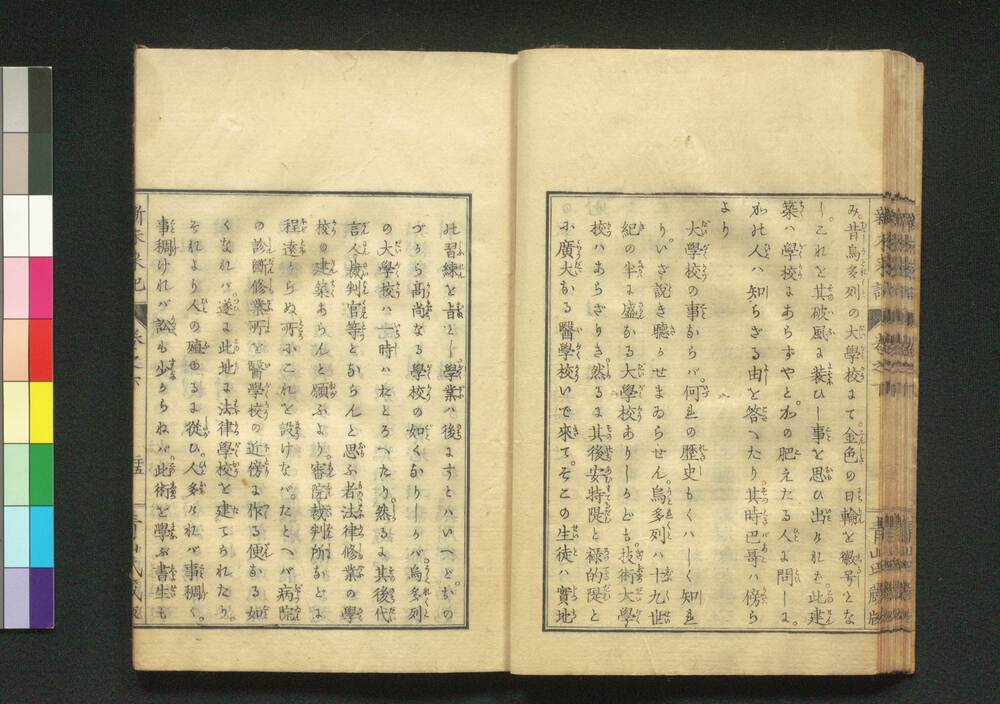 み昔烏多列の大學校にて金色の日輪を徽号とな
しこれを其破風に装ひし事を思ひ出られた此建
築ハ學校にあらずやとかの肥えたる人に問しに
かの人ハ知らざる由を答へたり其時巴哥ハ傍ら
より
大學校の事ならバ何れの歴史もくハしく知れ
りいざ説き聽かせまゐらせん烏多列ハ十九世
紀の半は盛なる大學校ありしかども技術大學
校ハあらざりき然るに其後安特隄と禄的隄と
に廣大なる醫學校いで來てそこの生徒ハ實地
の習練を旨とし學業ハ後にすとハいへどもの
づから高尚なる學校の如くなりしかバ烏多列
の大學校ハ一時ハおとろへたり然るに其後代
言人裁判官等とならんと思ふ者法律修業の學
校の建築あらんと願ふより審院裁判所などよ
程遠からぬ所にこれを設けなバたとへバ病院
の診斷修業所を醫學校の近傍に作る便なる如
くなれバ遂に此地に法律學校を建てられたり
それより人の殖るに從ひ人多けれバ事稠く
事稠けれバ訟も少からねバ此術を學ぶ書生も